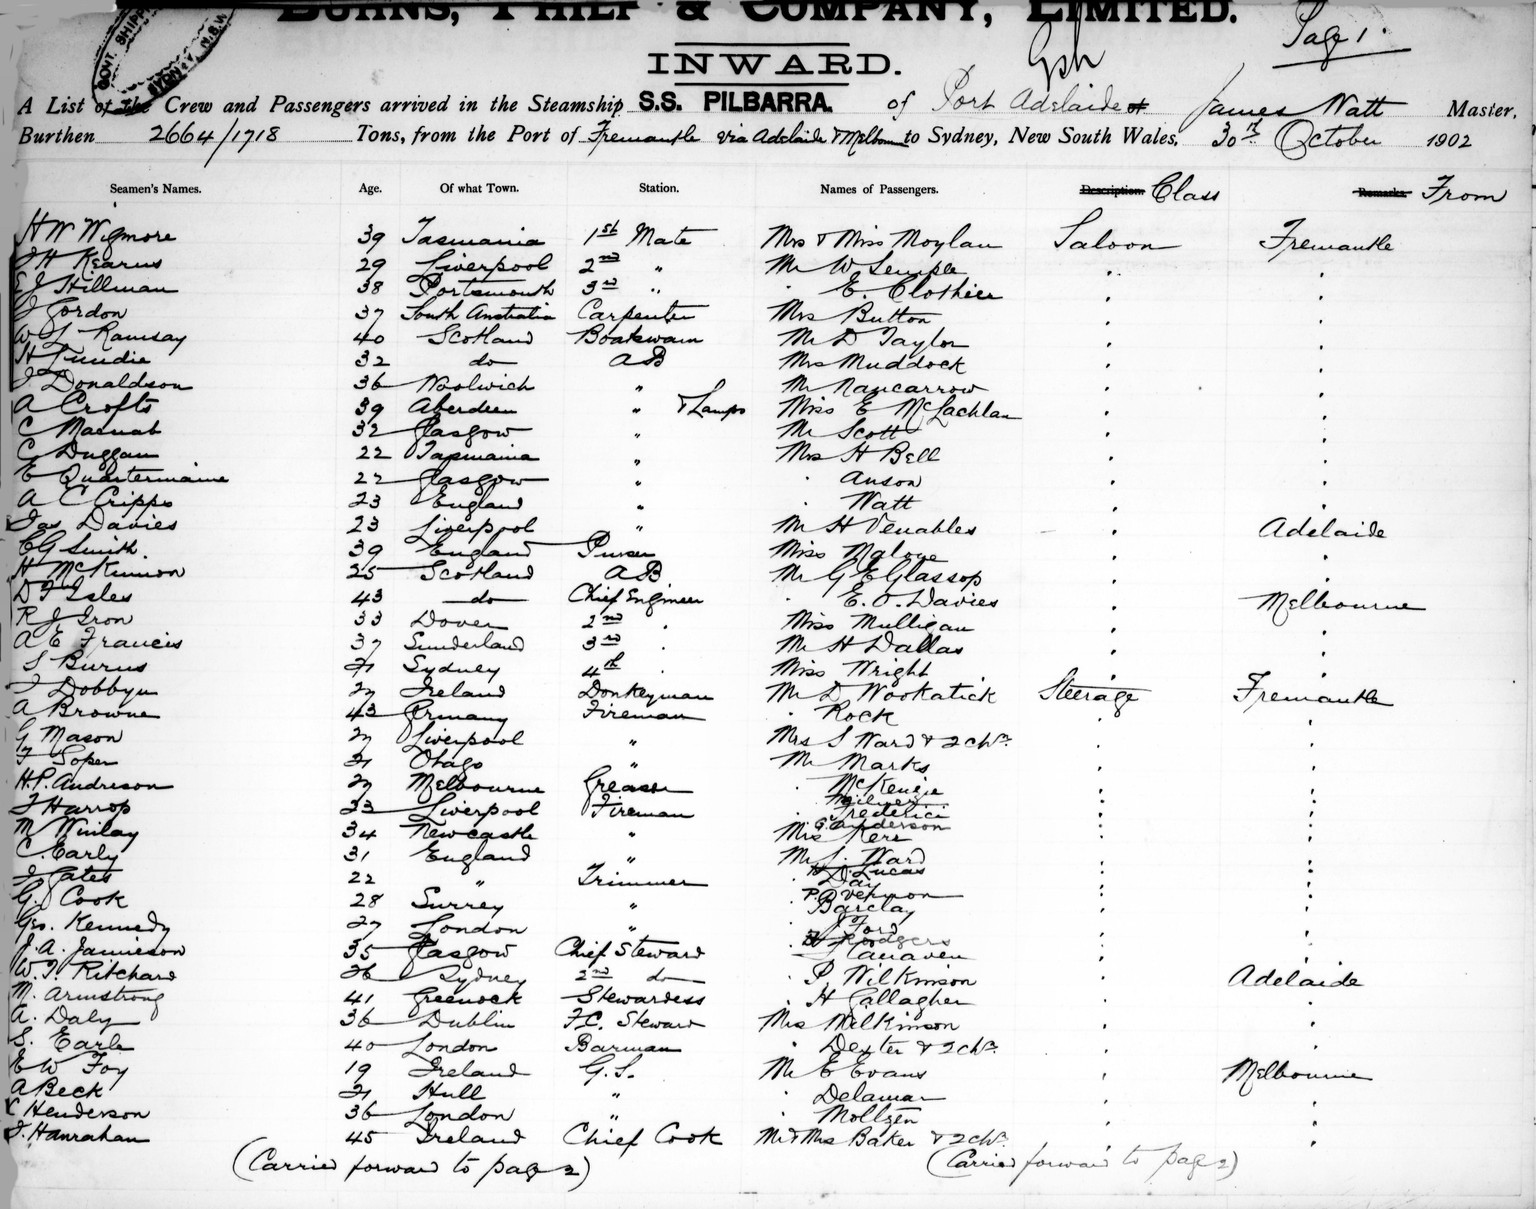 BURNS, PHILP & COMPANY, LIMITED.
Page 1.
GOVT. SHIPP
SYDNEY, N.S.W.
INWARD.
A List of the Crew and Passengers arrived in the Steamship S.S. PILBARRA. of Port Adelaide James Watt Master,
Burthen 2664/1718 Tons, from the Port of Fremantle via Adelaide & Melbourne to Sydney, New South Wales, 30th October 1902
Seamen's Names. Age. Of what Town. Station. Names of Passengers. Description. Class Remarks. From
H W Wigmore 39 Tasmania 1st Mate Mrs & Miss Moylan Saloon Fremantle
J H Kearns 29 Liverpool 2nd " Mr W Semple " "
E J Hillman 38 Portsmouth 3rd " " E. Clothier " "
J Gordon 37 South Australia Carpenter Mrs Button " "
W L Ramsay 40 Scotland Boatswain Mr D Taylor " "
H Lundie 32 do AB Mrs Muddock " "
J Donaldson 36 Woolwich " Mr Nancarrow " "
A Crofts 39 Aberdeen " & Lamps Miss E McLachlan " "
C Macnab 32 Glasgow " Mr Scott " "
C Duggan 22 Tasmania " Mrs H Bell " "
E Quartermaine 22 Glasgow " " Anson " "
A C Cripps 23 England " " Watt " "
Jas Davies 23 Liverpool " Mr H Venables " Adelaide
C G Smith. 39 England Purser Miss Malone " "
H McKinnon 25 Scotland AB Mr G E Glassop " "
D F Isles 43 do Chief Engineer " E. O. Davies " Melbourne
R J Iron 33 Dover 2nd " Miss Mulligan " "
A E Francis 37 Sunderland 3rd " Mr H Dallas " "
S Burns 21 Sydney 4th " Miss Wright " "
J Dobbyn 27 Ireland Donkeyman Mr D Wookatick Steerage Fremantle
A Browne 43 Germany Fireman " Rock " "
G Mason 27 Liverpool " Mrs S Ward & 2 chn. " "
F Soper 21 Otago " Mr Marks " "
H.P. Andreson 27 Melbourne Greaser " McKenzie " "
Milner
J Harrop 23 Liverpool Fireman " Frederici " "
G. Anderson
M Winlay 34 Newcastle " Mrs Kerr " "
C. Early 31 England " Mr J. Ward " "
D. Lucas
J Gates 22 " Trimmer " Day " "
P.B. Vernon
G. Cook 28 Surrey " " Barclay " "
Geo. Kennedy 27 London " " J Ford " "
Rodgers
J. A. Jamieson 35 Glasgow Chief Steward " " "
W. J. Ritchard 26 Sydney 2nd do " P Wilkinson " Adelaide
M. Armstrong 41 Greenock Stewardess " H Gallagher " "
A. Daly 36 Dublin F.C. Steward Mrs Wilkinson " "
S. Earle 40 London Barman " Dexter & 2 chn. " "
E W Foy 19 Ireland G.S. Mr E Evans " Melbourne
A Beck 21 Hull " " Delamar " "
C Henderson 36 London " " Moltzen " "
J. Hanrahan 45 Ireland Chief Cook Mr & Mrs Baker & 2 chn. " "
(Carried forward to page 2) (Carried forward to page 2)